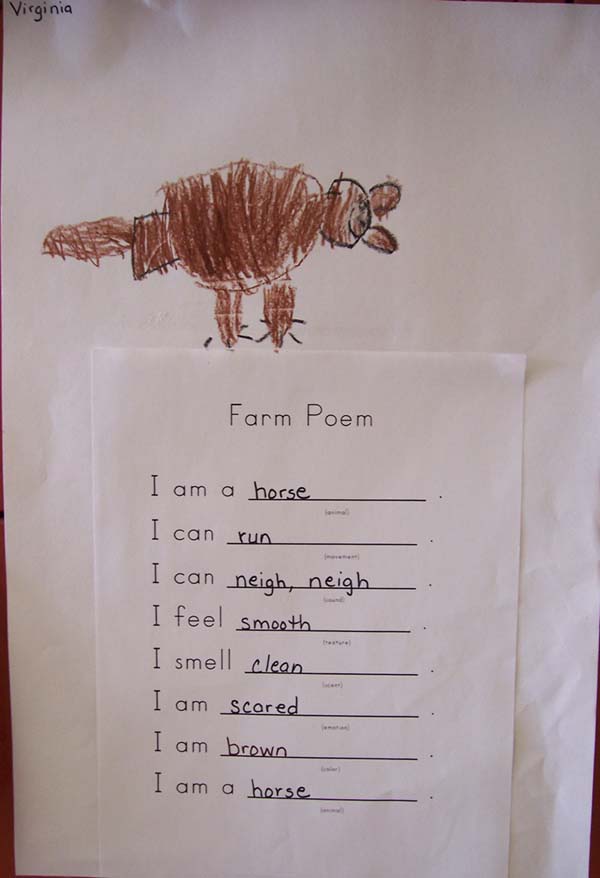 Virginia
Farm Poem
I am a horse.
(animal)
I can run.
(movement)
I can neigh, neigh.
(sound)
I feel smooth.
(texture)
I smell clean.
(scent)
I am scared.
(emotion)
I am brown.
(color)
I am a horse.
(animal)